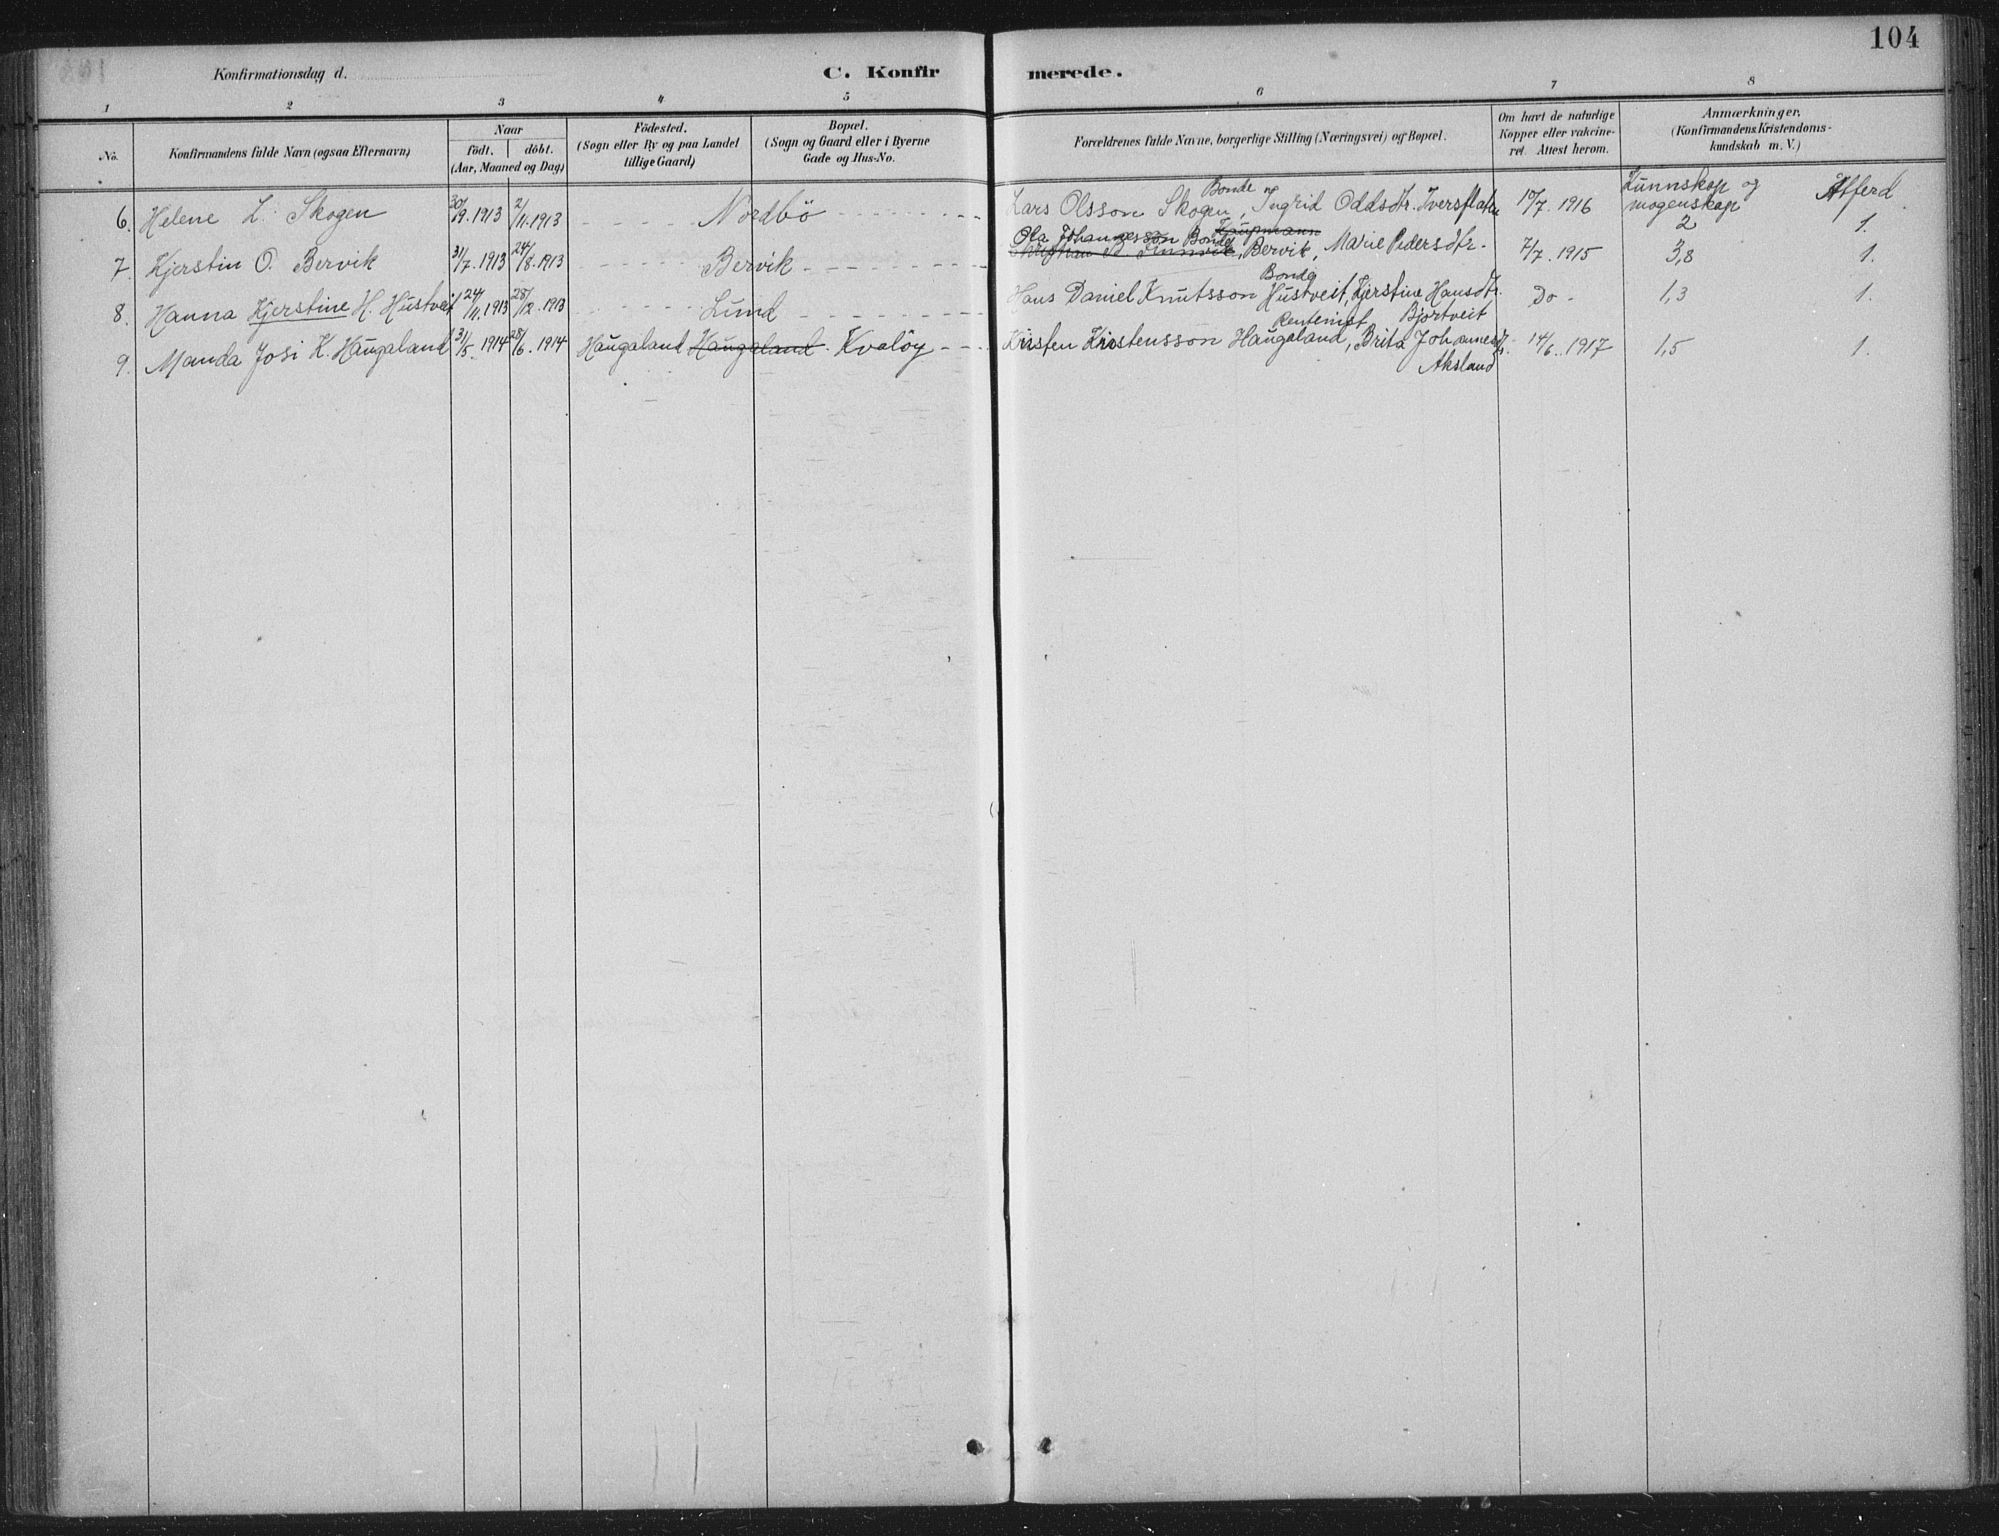 104
Konfirmationsdag d.
C. Konfirmerede.
1 2 3 4 5 6 7 8
No.
Konfirmandens fulde Navn (ogsaa Efternavn)
Naar
födt. döbt.
(Aar, Maaned og Dag)
Födested.
(Sogn eller By og paa Landet
tillige Gaard)
Bopæl.
(Sogn og Gaard eller i Byerne
Gade og Hus-No.
Forældrenes fulde Navne, borgerlige Stilling (Næringsvei) og Bopæl.
Om havt de naturlige
Kopper eller vakcine-
ret. Attest herom.
Anmærkninger.
(Konfirmandens Kristendoms-
kundskab m. V.)
Kunnskap og
mogenskap
Åtferd
Bonde og
6. Helene L. Skogen 30/9. 1913 2/11. 1913 Nordbö Lars Olsson Skogen, Ingrid Oddsdtr. Iversflaten 10/7. 1916 2 1.
Ola Johannesson Bonde Kaupmann
7. Kjerstin O. Bervik 31/7. 1913 24/8. 1913 Bervik Bervik, Marie Pedersdtr. 7/7. 1915 3,8 1.
Bonde
8. Hanna Kjerstine H. Hustveit 24/11. 1913 28/12. 1913 Lund Hans Daniel Knutsson Hustveit, Kjerstine Hansdtr. Do - 1,3 1.
Rentenist Bjortveit
9. Manda Josi K. Haugaland 31/5. 1914 28/6. 1914 Haugaland Haugaland Kvaløy Kristen Kristensson Haugaland, Brita Johannesdtr. 14/6. 1917 1,5 1.
Aksland